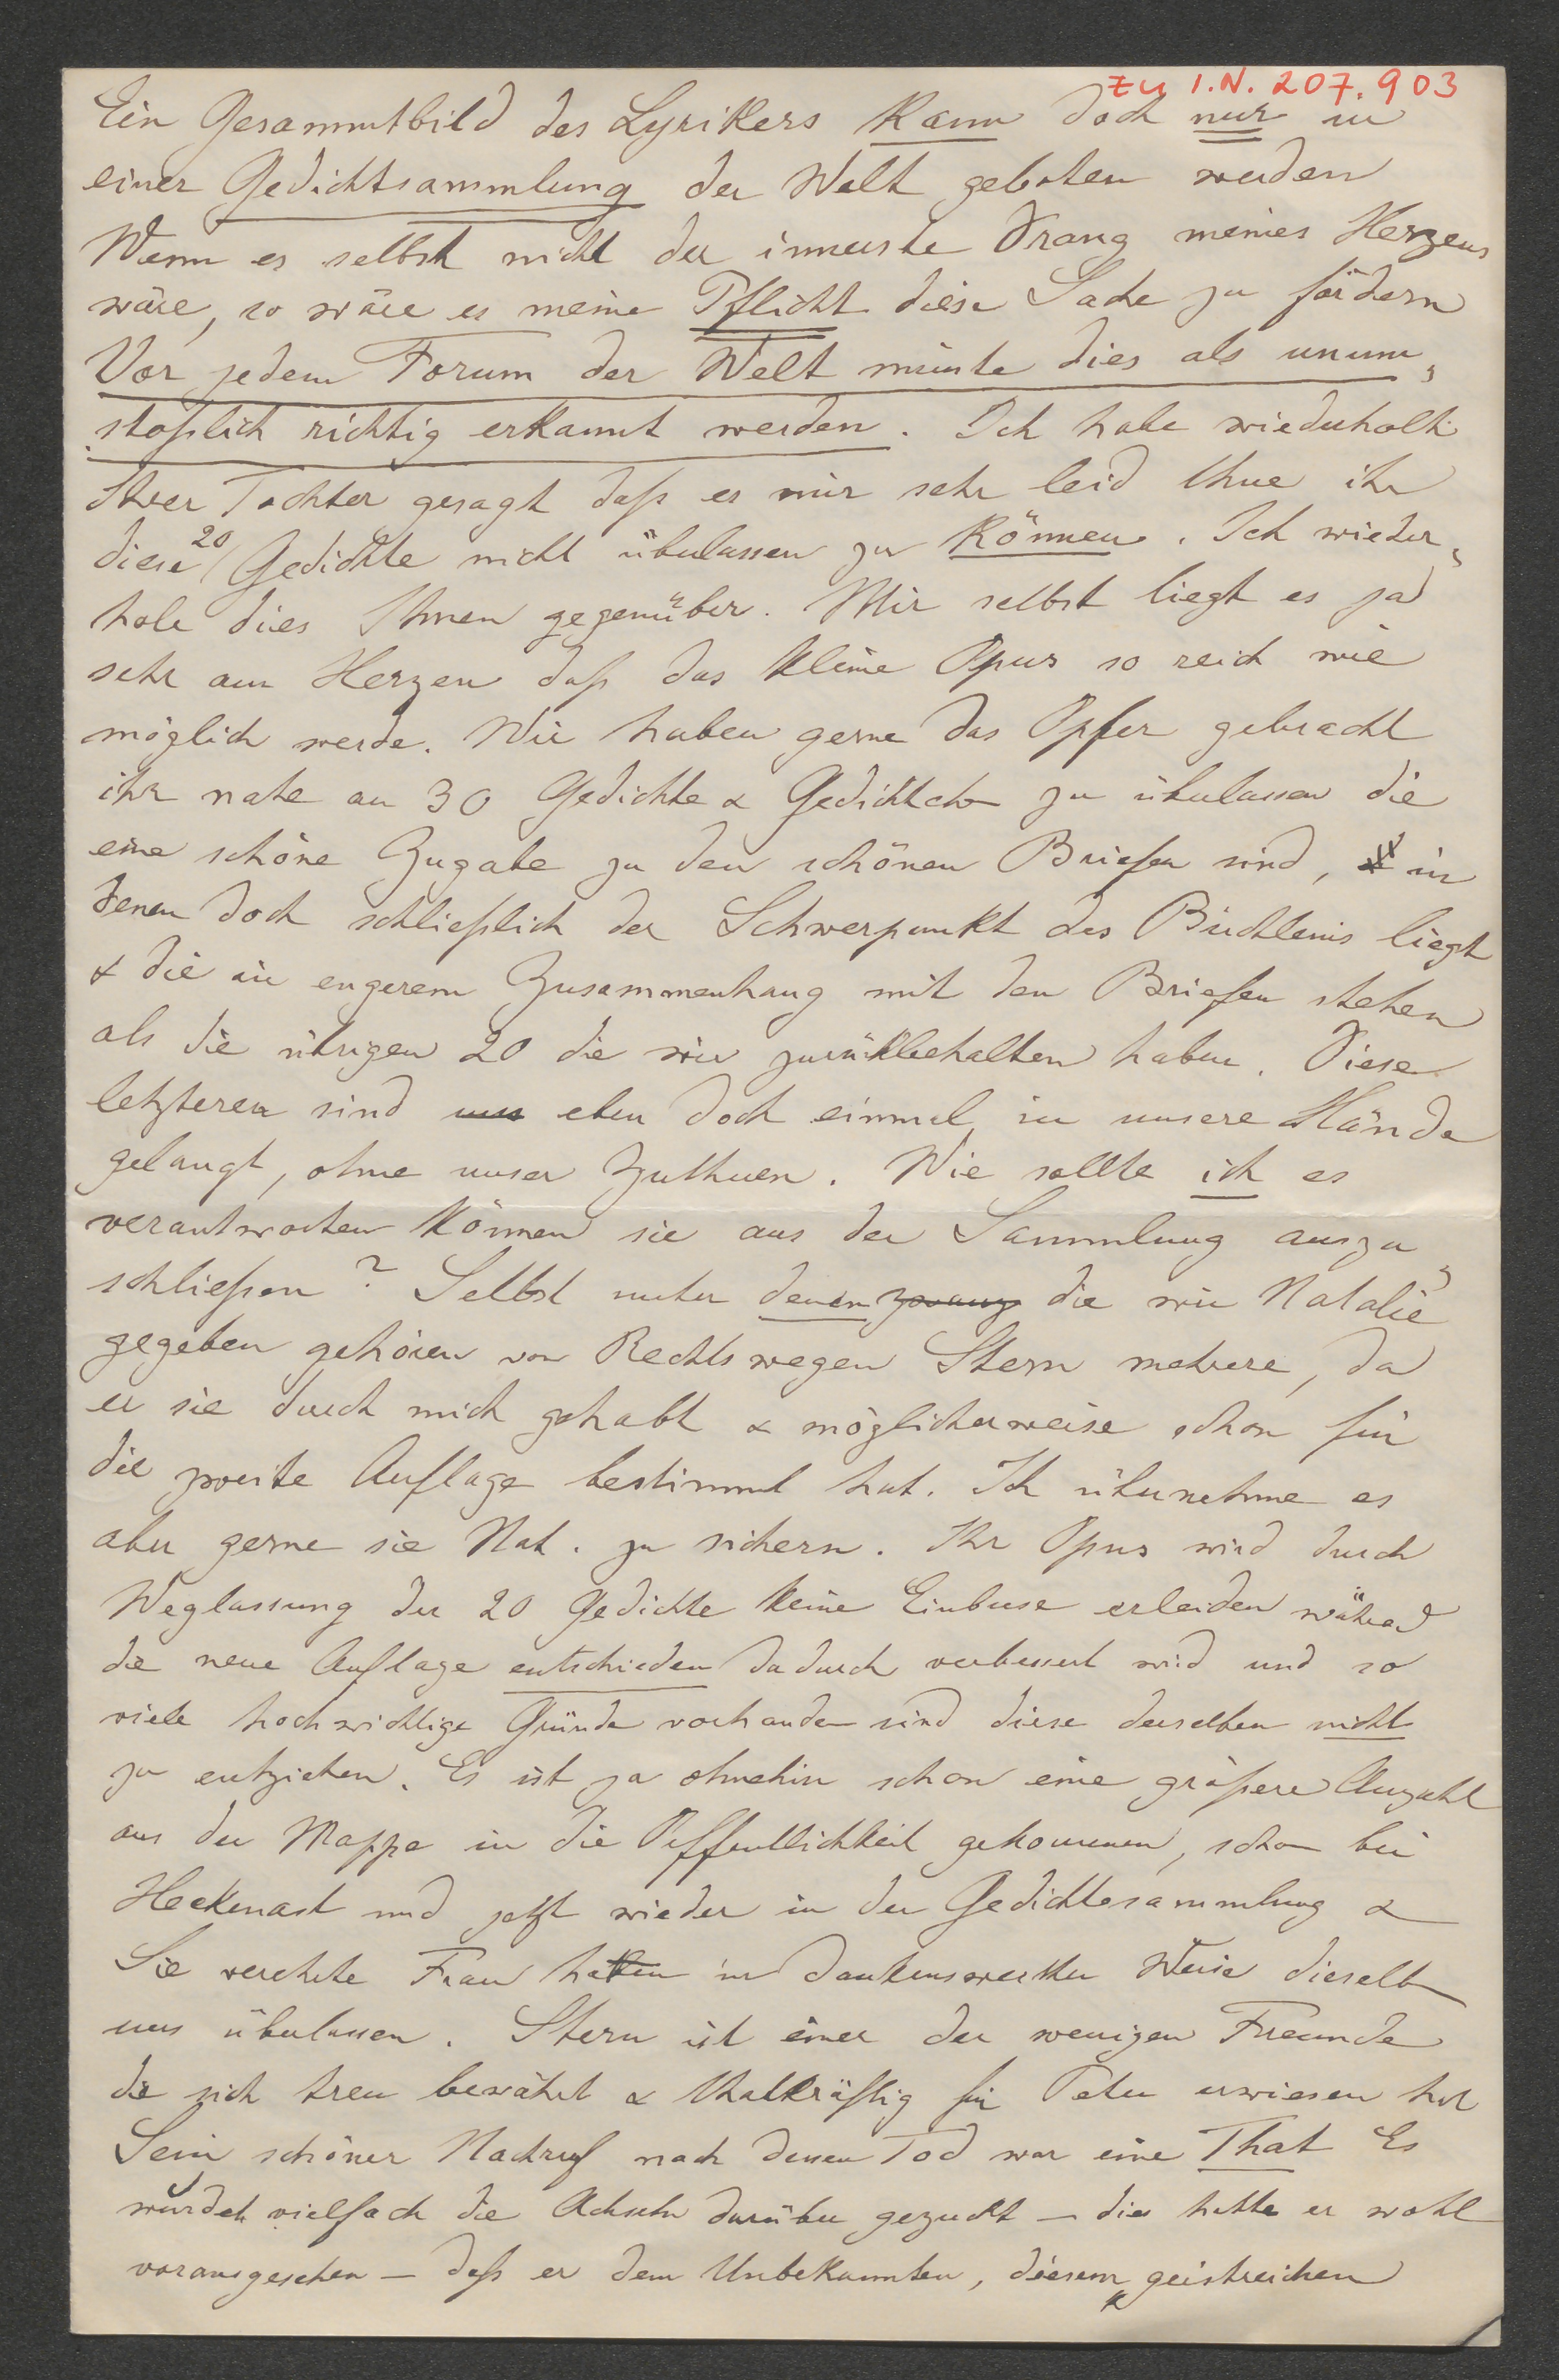 zu I.N. 207.903
Ein Gesammtbild des Lyrikers kann doch nur in
einer Gedichtsammlung der Welt geboten werden
Wenn es selbst nicht der innerste Drang meines Herzens
wäre, so wäre es meine Pflicht diese Sache zu fördern
Vor jedem Forum der Welt müsste dies als unum„
stoßlich richtig erkannt werden. Ich habe wiederholt
Ihrer Tochter gesagt daß es mir sehr leid thue ihr
diese 20 Gedichte nicht überlassen zu können. Ich wieder„
hole dies Ihnen gegenüber. Mir selbst liegt es ja
sehr am Herzen daß das kleine Opus so reich wie
möglich werde. Wir haben gerne das Opfer gebracht
ihr nahe an 30 Gedichte & Gedichtchen zu überlassen die
eine schöne Zugabe zu den schönen Briefen sind, in
denen doch schließlich der Schwerpunkt des Büchleins liegt
& die in engerem Zusammenhang mit den Briefen stehen
als die übrigen 20 die wir zurükbehalten haben. Diese
letzteren sind uns eben doch einmal in unsere Hände
gelangt, ohne unser Zuthuen. Wie sollte ich es
verantworten können sie aus der Sammlung auszu„
schließen? Selbst unter denen zwanz die wir Natalie
gegeben gehören von Rechtswegen Stern mehrere, da
er sie durch mich gehabt & möglicherweise schon für
die zweite Auflage bestimmt hat. Ich übernehme es
aber gerne sie Nat. zu sichern. Ihr Opus wird durch
Weglassung der 20 Gedichte keine Einbuse erleiden während
die neue Auflage entschieden dadurch verbessert wird und so
viele hochwichtige Gründe vorhanden sind diese derselben nicht
zu entziehen. Es ist ja ohnehin schon eine größere Anzahl
aus der Mappe in die Oeffentlichkeit gekommen, schon bei
Heckenast und jetzt wieder in der Gedichtesammlung &
Sie verehrte Frau hatten in dankenswerther Weise dieselben
uns überlassen. Stern ist einer der wenigen Freunde
die sich treu bewährt & thatkräftig für Peter erwiesen hat
Sein schöner Nachruf nach dessen Tod war eine That Es
wurden vielfach die Achseln darüber gezuckt – dies hatte er wohl
vorausgesehen – daß er dem Unbekannten, diesem geistreichen